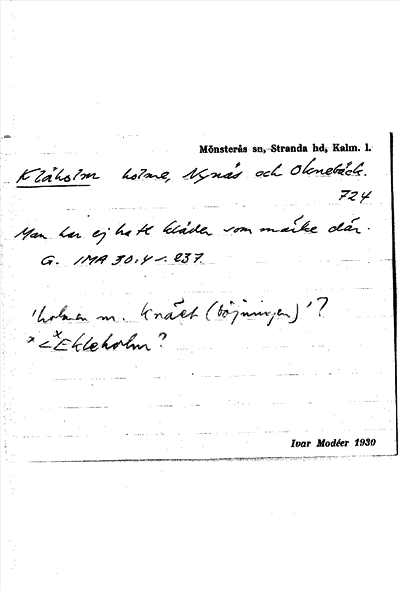 Mönsterås sn, Stranda hd, Kalm. l.
Klåholm holme, Nynäs och Oknebäck.
724
Man har ej haft kläder som märke där.
G. IMA 30:4 s. 237.
'holmen m. knäet (böjningen)'?
x < x Ekleholm?
Ivar Modéer 1930